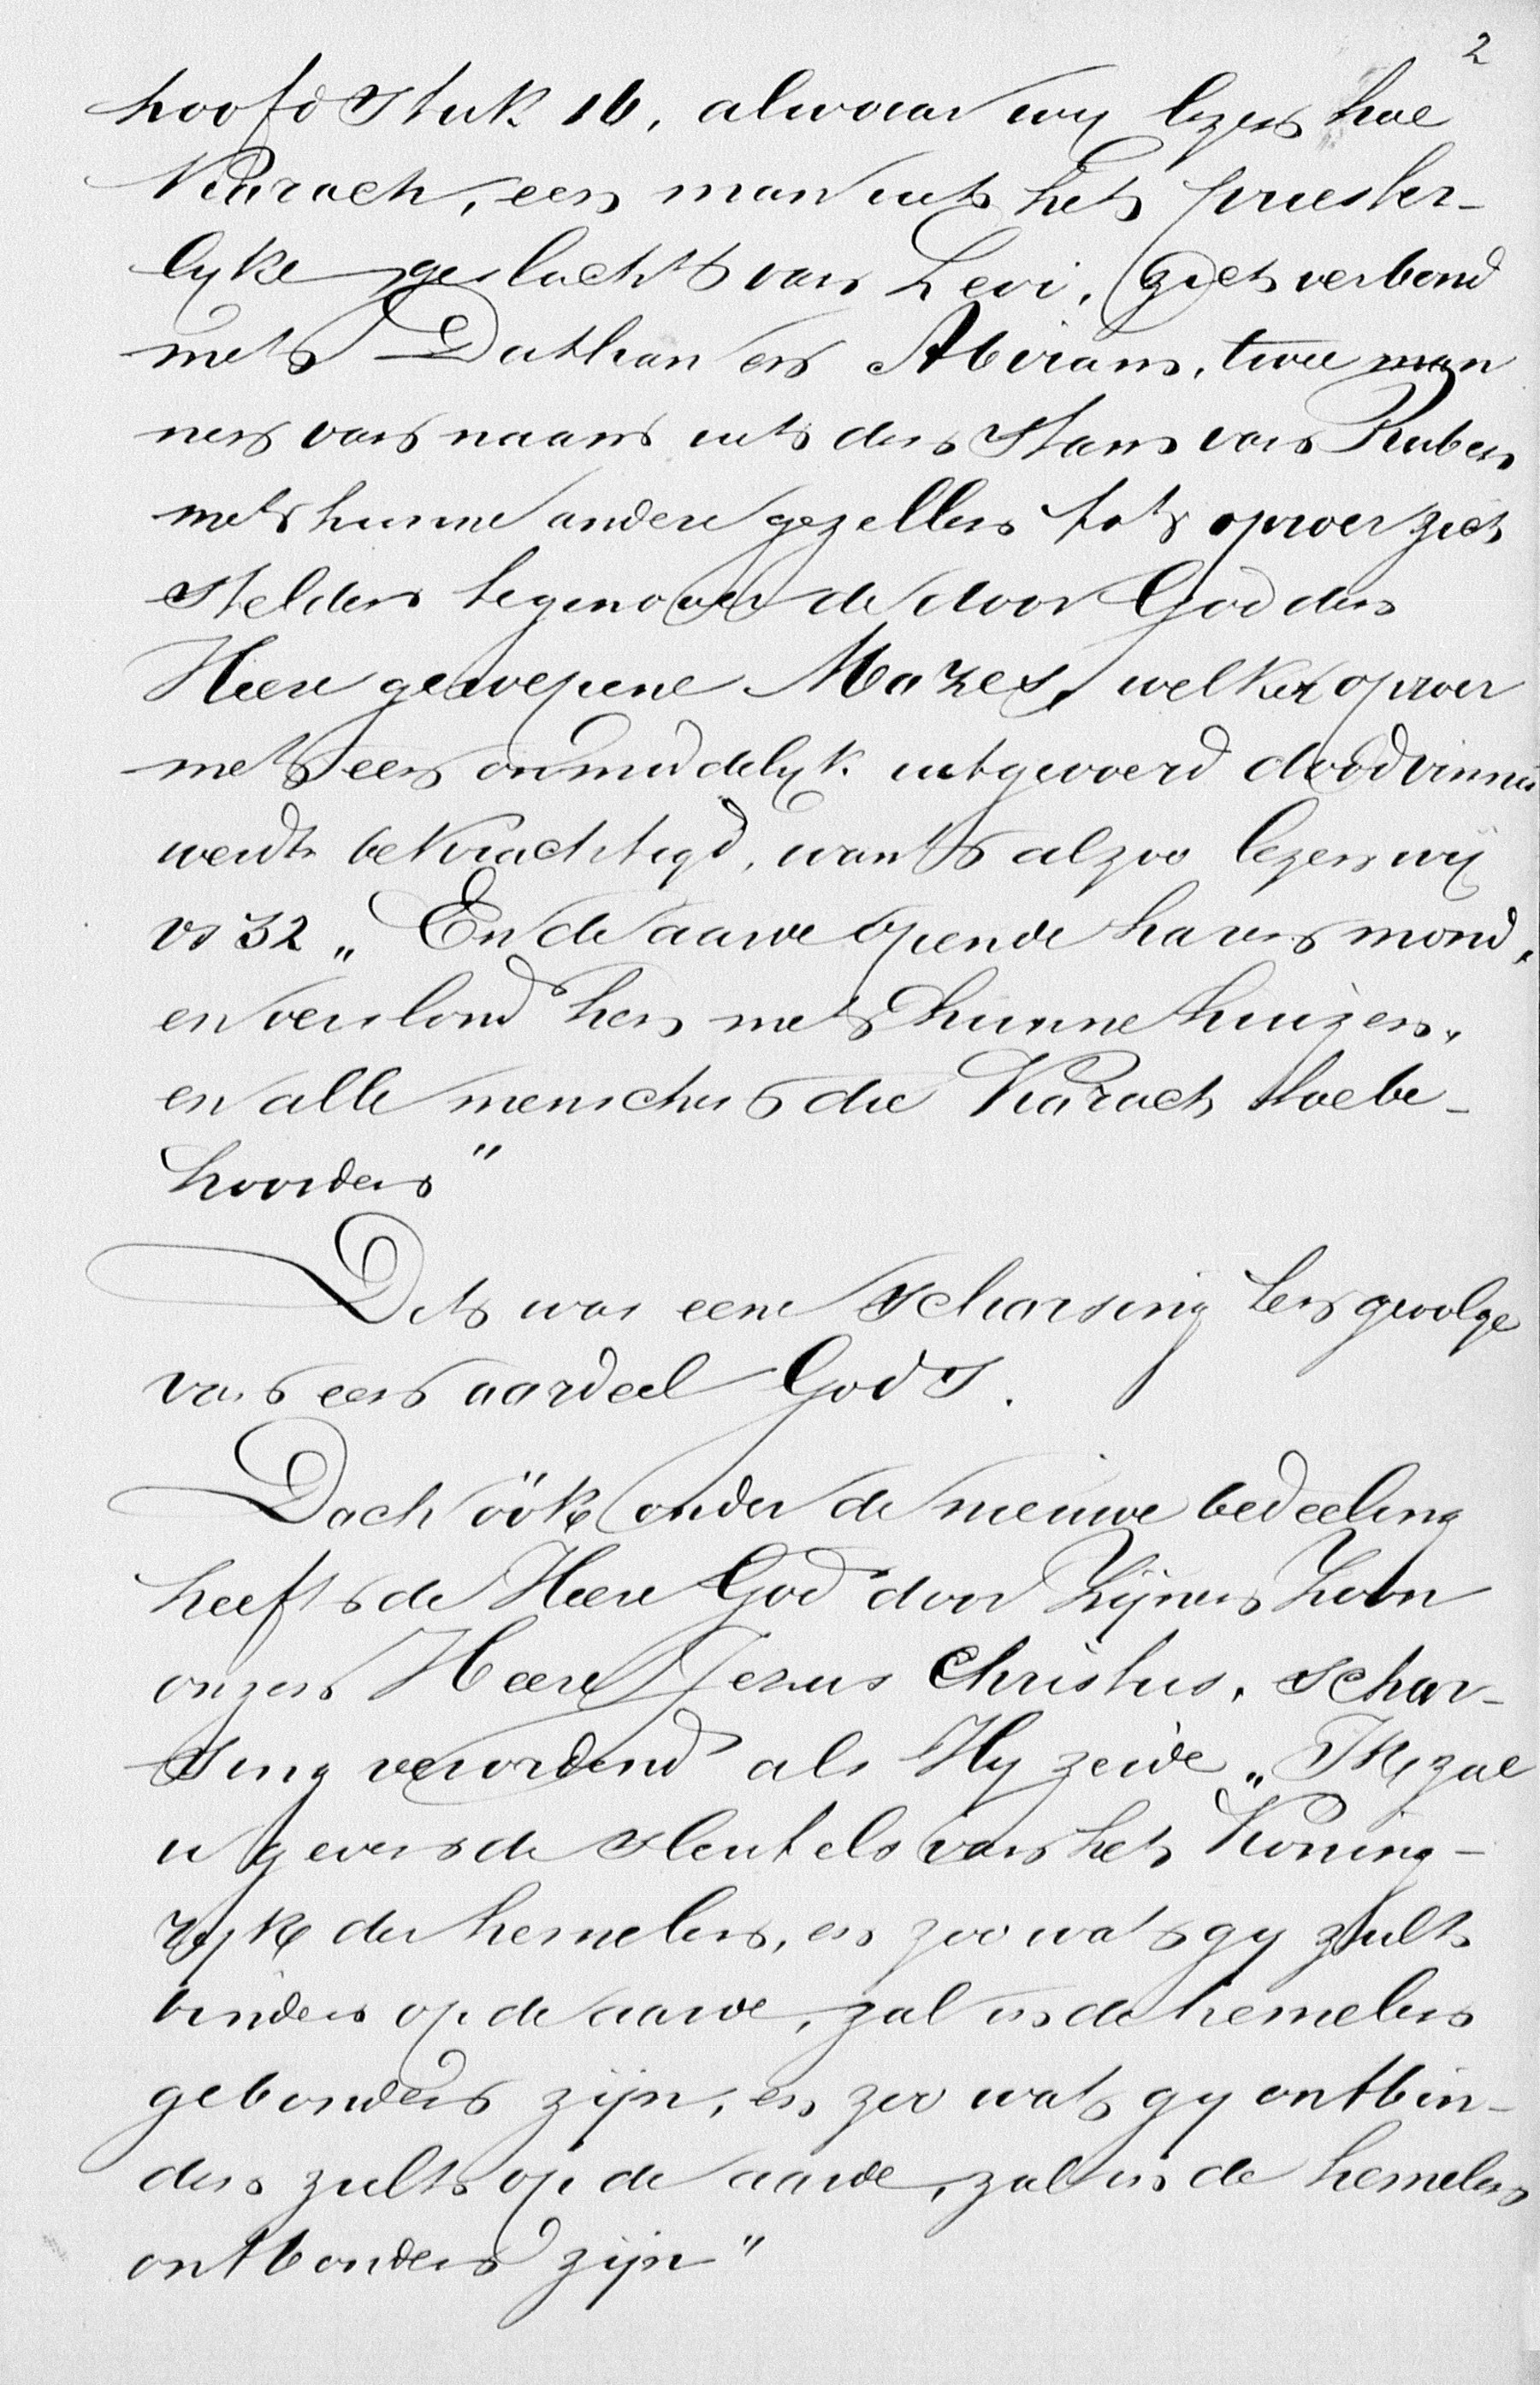 2
hoofdstuk 16, alwaar wij lezen hoe
Korach, een man uit het priester-
lyke geslacht van Levi, zich verbond
met Dathan en Abiram, twee man
nen van naam uit den stam van Ruben
met hunne andere gezellen tot oproer zich
stelden tegenover de door God den
Heere geroepene Mozes, welker oproer
met een onmiddelyk uitgevoerd doodvinnis
werdt bekrachtigd, want alzoo lezen wij
vs 32 „En de aarde opende haren mond,
en verslond hen met hunne huizen,
en alle menschen die Korach toebe-
hoorden"
Dit was eene schorsing ten gevolge
van een oordeel Gods.
Doch öök onder de nieuwe bedeeling
heeft de Heere God door Zijnen Zoon
onzen Heere Jezus Christus, schor-
sing verordend als Hy zeide „Ik zal
u geven de sleutels van het Koning-
ryk der hemelen, en zoo wat gy zult
binden op de aarde, zal in de hemelen
gebonden zijn, en zoo wat gy ontbin-
den zult op de aarde, zal in de hemelen
ontbonden zijn"